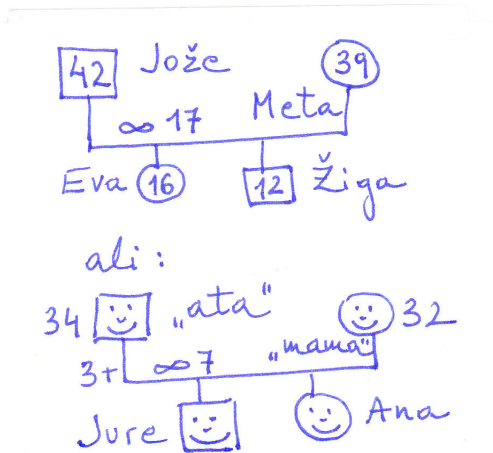 42 Jože 39
∞ 17 Meta
Eva 16 12 Žiga
ali :
34 „ata“ 32
3+ ∞ 7 „mama“
Jure Ana